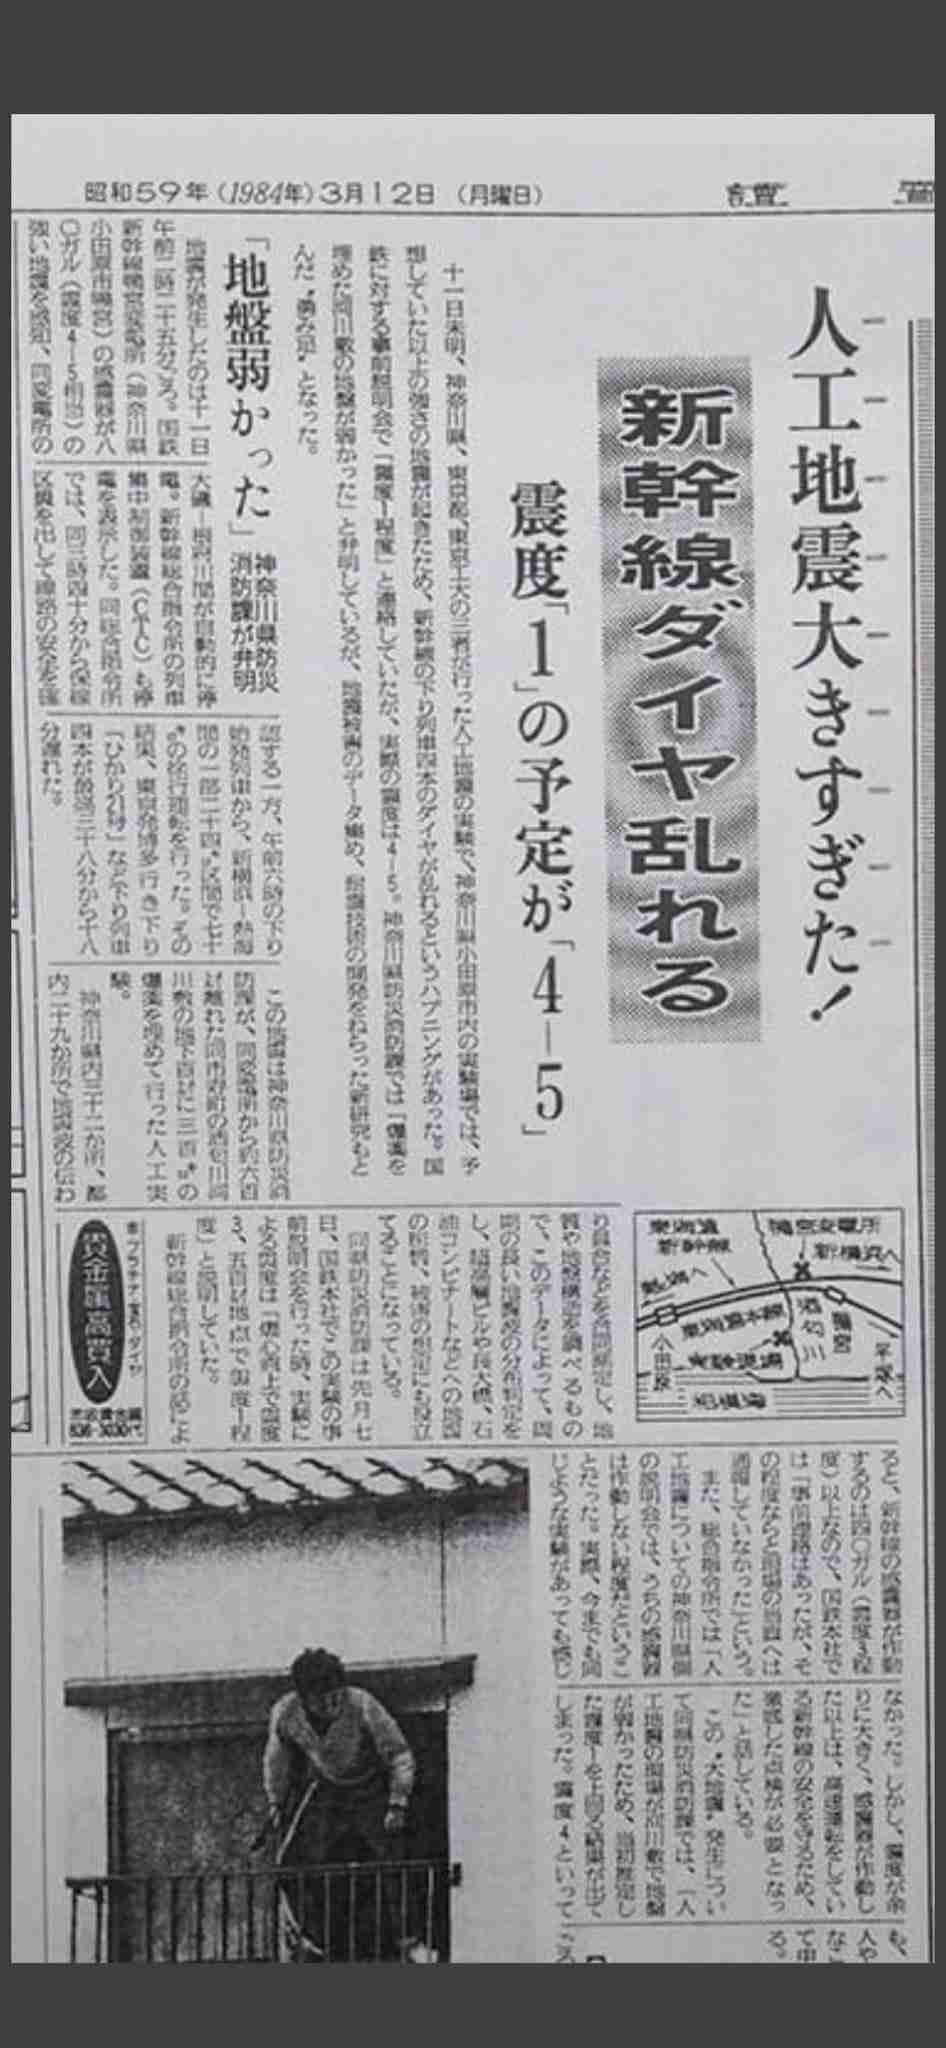 昭和59年(1984年)3月12日 (月曜日)
讀賣
人工地震大きすぎた!
新幹線ダイヤ乱れる
震度「1」の予定が「4―5」
十一日未明、神奈川県、東京都、東京工大の三者が行った人工地震の実験で、神奈川県小田原市内の実験場では、予
想していた以上の強さの地震が起きたため、新幹線の下り列車四本のダイヤが乱れるというハプニングがあった。国
鉄に対する事前説明会で「震度1程度」と連絡していたが、実際の震度は4―5。神奈川県防災消防課では「爆薬を
埋めた河川敷の地盤が弱かった」と弁明しているが、地震被害のデータ集め、耐震技術の開発をねらった新研究もと
んだ“勇み足”となった。
「地盤弱かった」
神奈川県防災
消防課が弁明
地震が発生したのは十一日
午前二時二十五分ごろ。国鉄
新幹線鴨宮変電所(神奈川県
小田原市鴨宮)の感震器が八
〇ガル(震度4―5相当)の
強い地震を感知、同変電所の
大磯―根府川間が自動的に停
電。新幹線総合指令所の列車
集中制御装置(CTC)も停
電を表示した。同総合指令所
では、同三時四十分から保線
区員を出して線路の安全を確
認する一方、午前六時の下り
始発列車から、新横浜―熱海
間の一部二十四㌔区間で七十
㌔の徐行運転を行った。その
結果、東京発博多行き下り
「ひかり21号」など下り列車
四本が最高三十八分から十八
分遅れた。
この地震は神奈川県防災消
防課が、同変電所から約六百
㍍離れた同市寿町の酒匂川河
川敷の地下百㍍に三百㌔の
爆薬を埋めて行った人工実
験。
神奈川県内三十二か所、都
内二十九か所で地震波の伝わ
り具合などを各同時測定し、地
質や地盤構造を調べるもの
で、このデータによって、周
期の長い地震波の分布判定を
し、超高層ビルや長大橋、石
油コンビナートなどへの地震
の影響、被害の想定にも役立
てることになっている。
同県防災消防課は先月七
日、国鉄本社でこの実験の事
前説明会を行った時、実験に
よる震度は「爆心直上で震度
3、五百㍍地点で震度1程
度」と説明していた。
新幹線総合指令所の話によ
東海道
新幹線
鴨宮変電所
新横浜へ
熱海へ
東海道本線
酒匂川
鴨宮
平塚へ
小田原
実験現場
相模湾
金・プラチナ・宝石・ダイヤ
貴金属高買入
836-3030代
ると、新幹線の感震器が作動
するのは四〇ガル(震度3程
度)以上なので、国鉄本社で
は「事前連絡はあったが、そ
の程度ならと現場の当局へは
通報していなかった」という。
また、総合指令所では「人
工地震についての神奈川県側
の説明会では、うちの感震器
は作動しない程度だというこ
とだった。実際、今までも同
じような実験があっても感じ
なかった。しかし、震度が余
りに大きく、感震器が作動し
た以上は、高速運転をしてい
る新幹線の安全を守るため、
徹底した点検が必要となっ
た」と話している。
この“大地震”発生につい
て同県防災消防課では、「人
工地震の現場が河川敷で地盤
が弱かったため、当初推定し
た震度1を上回る結果が出て
しまった。震度4といって
も、
人や
なこ
て申
る。